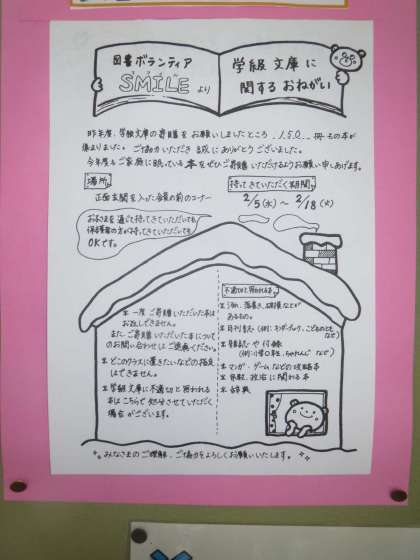 図書ボランティア
SMILEより
学級文庫に
関するおねがい
昨年度、学級文庫の寄贈をお願いしましたところ、150冊もの本が
集まりました。ご協力いただき誠にありがとうございました。
今年度もご家庭に眠っている本をぜひご寄贈いただけるようお願い申しあげます。
場所
正面玄関を入った会議の前のコーナー
持ってきていただく期間
2/5(水)〜2/18(火)
お子さまを通じて持ってきていただいても
保護者の方が持ってきていただいても
OKです。
一度ご寄贈いただいた本は
お返しできません。
また、ご寄贈いただいた本について
のお問い合わせはご遠慮ください。
どこのクラスに置きたいなどの指定
はできません。
学級文庫に不適切と思われる
本はこちらで処分させていただく
場合がございます。
不適切と思われる本
汚れ、落書き、破損などが
あるもの。
月刊誌(例:キンダーブック、こどものとも
など)
雑誌や付録
など)
マンガ・ゲームなどの攻略本
宗教、政治に関わる本
辞典
みなさまのご理解、ご協力をよろしくお願いいたします。